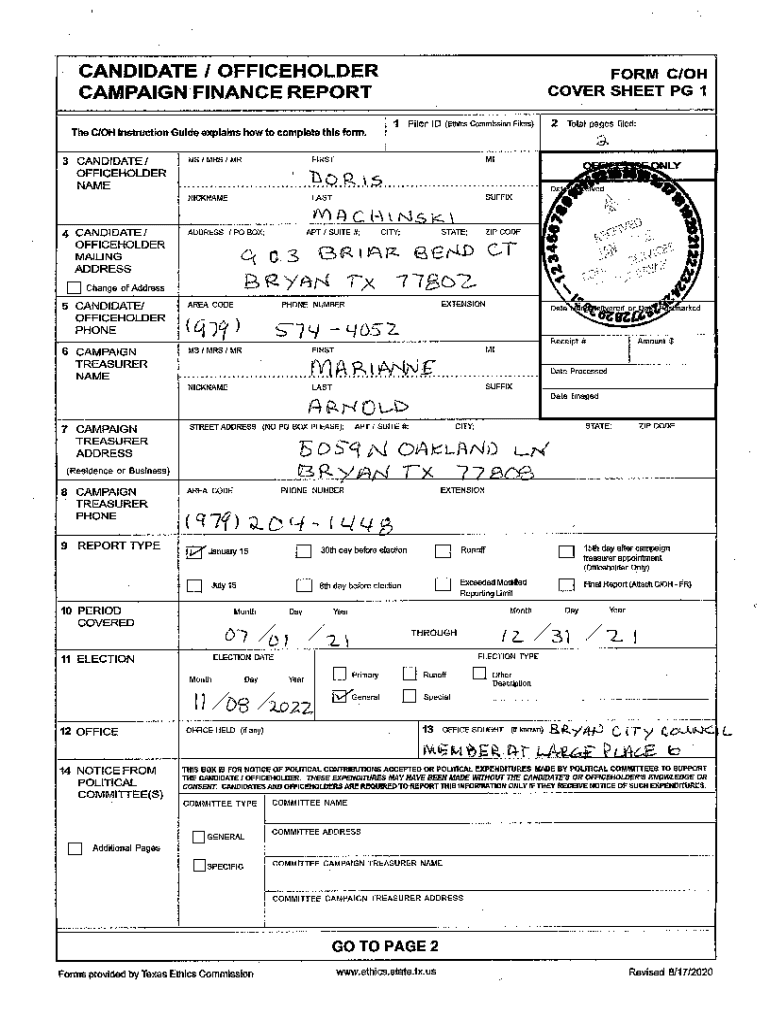 CANDIDATE / OFFICEHOLDER
CAMPAIGN FINANCE REPORT
FORM C/OH
COVER SHEET PG 1
The C/OH Instruction Guide explains how to complete this form.
1 Filer ID (Ethics Commission Filers)
2 Total pages filed:
2
3 CANDIDATE / OFFICEHOLDER NAME
MS / MRS / MR FIRST MI
DORIS
NICKNAME LAST SUFFIX
MACHINSKI
OFFICE USE ONLY
Date Received
RECEIVED
JAN
SERVICES
4 CANDIDATE / OFFICEHOLDER MAILING ADDRESS
Change of Address
ADDRESS / PO BOX; APT / SUITE #; CITY; STATE; ZIP CODE
903 BRIAR BEND CT
BRYAN TX 77802
5 CANDIDATE/ OFFICEHOLDER PHONE
AREA CODE PHONE NUMBER EXTENSION
(979) 574-4052
Date Hand-delivered or Date Postmarked
Receipt # Amount $
6 CAMPAIGN TREASURER NAME
MS / MRS / MR FIRST MI
MARIANNE
NICKNAME LAST SUFFIX
ARNOLD
Date Processed
Date Imaged
7 CAMPAIGN TREASURER ADDRESS
(Residence or Business)
STREET ADDRESS (NO PO BOX PLEASE); APT / SUITE #; CITY; STATE; ZIP CODE
5059 N OAKLAND LN
BRYAN TX 77808
8 CAMPAIGN TREASURER PHONE
AREA CODE PHONE NUMBER EXTENSION
(979) 204-1448
9 REPORT TYPE
January 15 30th day before election Runoff 15th day after campaign treasurer appointment (Officeholder Only)
July 15 8th day before election Exceeded Modified Reporting Limit Final Report (Attach C/OH - FR)
10 PERIOD COVERED
Month Day Year Month Day Year
07 / 01 / 21 THROUGH 12 / 31 / 21
11 ELECTION
ELECTION DATE ELECTION TYPE
Month Day Year
11 / 08 / 2022
Primary Runoff Other Description
General Special
12 OFFICE
OFFICE HELD (if any)
13 OFFICE SOUGHT (if known) BRYAN CITY COUNCIL
MEMBER AT LARGE PLACE 6
14 NOTICE FROM POLITICAL COMMITTEE(S)
Additional Pages
THIS BOX IS FOR NOTICE OF POLITICAL CONTRIBUTIONS ACCEPTED OR POLITICAL EXPENDITURES MADE BY POLITICAL COMMITTEES TO SUPPORT
THE CANDIDATE / OFFICEHOLDER. THESE EXPENDITURES MAY HAVE BEEN MADE WITHOUT THE CANDIDATE'S OR OFFICEHOLDER'S KNOWLEDGE OR
CONSENT. CANDIDATES AND OFFICEHOLDERS ARE REQUIRED TO REPORT THIS INFORMATION ONLY IF THEY RECEIVE NOTICE OF SUCH EXPENDITURES.
COMMITTEE TYPE COMMITTEE NAME
GENERAL
SPECIFIC
COMMITTEE ADDRESS
COMMITTEE CAMPAIGN TREASURER NAME
COMMITTEE CAMPAIGN TREASURER ADDRESS
GO TO PAGE 2
Forms provided by Texas Ethics Commission www.ethics.state.tx.us Revised 8/17/2020